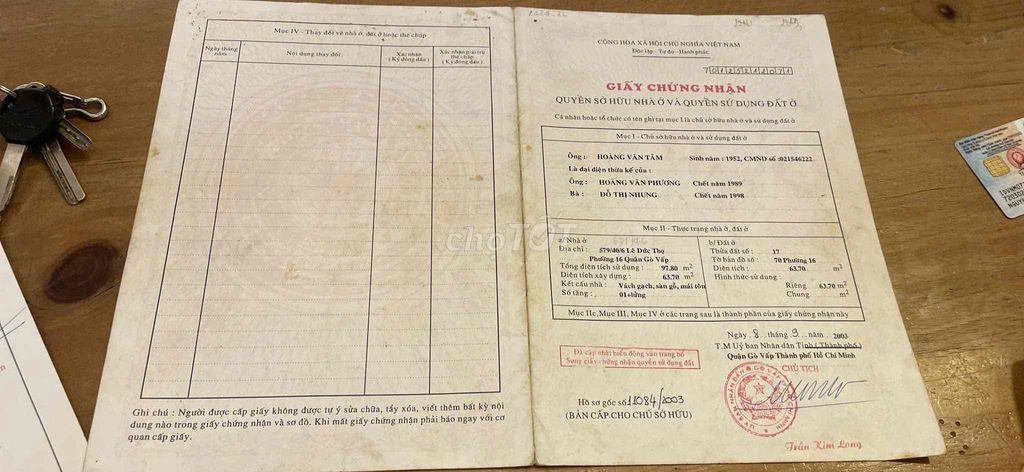 Mục IV - Thay đổi về nhà ở, đất ở hoặc thế chấp
Ngày tháng năm
Nội dung thay đổi
Xác nhận (Ký đóng dấu)
Xác nhận giải trừ thế chấp (Ký đóng dấu)
Ghi chú : Người được cấp giấy không được tự ý sửa chữa, tẩy xóa, viết thêm bất kỳ nội
dung nào trong giấy chứng nhận và sơ đồ. Khi mất giấy chứng nhận phải báo ngay với cơ
quan cấp giấy.
CỘNG HÒA XÃ HỘI CHỦ NGHĨA VIỆT NAM
Độc lập - Tự do - Hạnh phúc
GIẤY CHỨNG NHẬN
QUYỀN SỞ HỮU NHÀ Ở VÀ QUYỀN SỬ DỤNG ĐẤT Ở
Cá nhân hoặc tổ chức có tên ghi tại mục I là chủ sở hữu nhà ở và sử dụng đất ở
Mục I - Chủ sở hữu nhà ở và sử dụng đất ở
Ông : HOÀNG VĂN TÂM Sinh năm : 1952, CMND số :021546222
Là đại diện thừa kế của :
Ông : HOÀNG VĂN PHƯƠNG Chết năm 1989
Bà : ĐỖ THỊ NHUNG Chết năm 1998
Mục II - Thực trạng nhà ở, đất ở
a/ Nhà ở
Địa chỉ : 579/40/6 Lê Đức Thọ
Phường 16 Quận Gò Vấp
Tổng diện tích sử dụng : 97.80 m2
Diện tích xây dựng : 63.70 m2
Kết cấu nhà : Vách gạch, sàn gỗ, mái tôn
Số tầng : 01+lửng
b/ Đất ở
Thửa đất số : 17
Tờ bản đồ số : 70 Phường 16
Diện tích : 63.70 m2
Hình thức sử dụng :
Riêng 63.70 m2
Chung m2
Mục IIc, Mục III, Mục IV ở các trang sau là thành phần của giấy chứng nhận này
Ngày 8 tháng 9 năm 2003
T.M Uỷ ban Nhân dân Tỉnh (Thành phố)
Quận Gò Vấp Thành phố Hồ Chí Minh
CHỦ TỊCH
Đã cập nhật biến động vào trang bổ
Sung giấy chứng nhận quyền sử dụng đất
Hồ sơ gốc số 11084/2003
(BẢN CẤP CHO CHỦ SỞ HỮU)
Trần Kim Long
chợTỐT